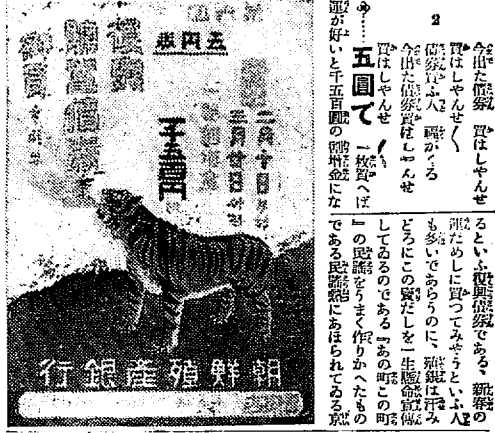 2
今出た債券 買はしやんせ
買はしやんせ〱
債券買ふ人 福がくる
今出た債券買はしやんせ
買はしやんせ〱
……五圓で 一枚買へば
運が好いと千五百圓の割増金にな
るといふ復興債券である、新春の
運だめしに買つてみやうといふ人
も多いであらうのに、殖銀は汗み
どろにこの賣だしを一生懸命宣傳
してゐるのである『あの町この町
』の民謡をうまく作りかへたもの
である民謡熱にあほられてゐる京
二月十日
三月廿日
千五百円
朝鮮殖産銀行